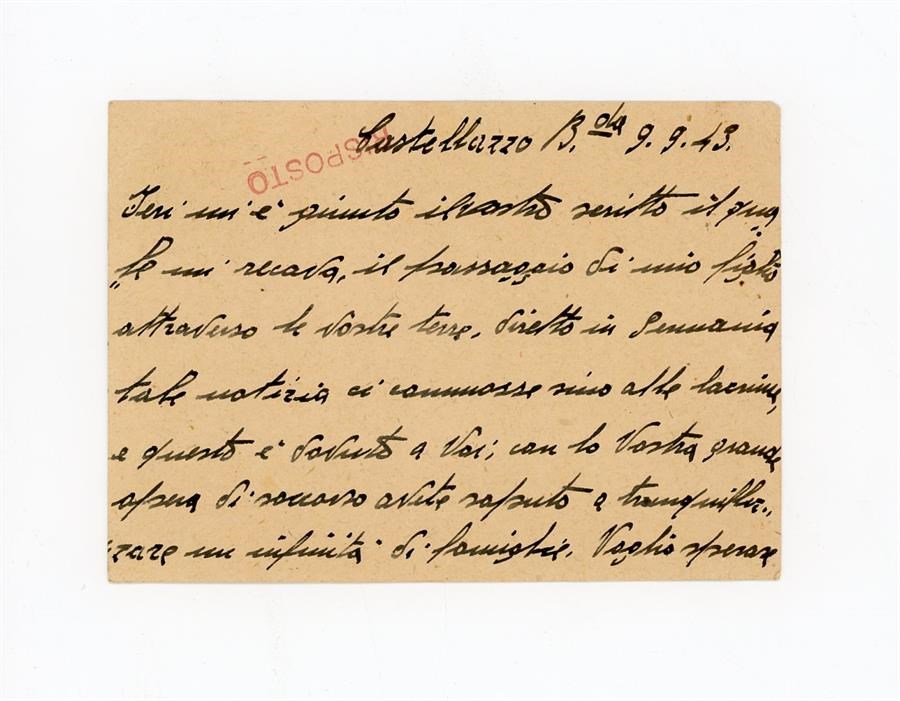 Castellazzo B.da 9.9.43.
RISPOSTO
Ieri mi è giunto il vostro scritto il qua
"le mi recava, il passaggio di mio figlio
attraverso le vostre terre, diretto in Germania
tale notizia ci commosse sino alle lacrime,
e questo è dovuto a Voi; con la Vostra grande
opera di soccorso avete saputo a tranquilliz..
zare un infinità di famiglie. Voglio sperare